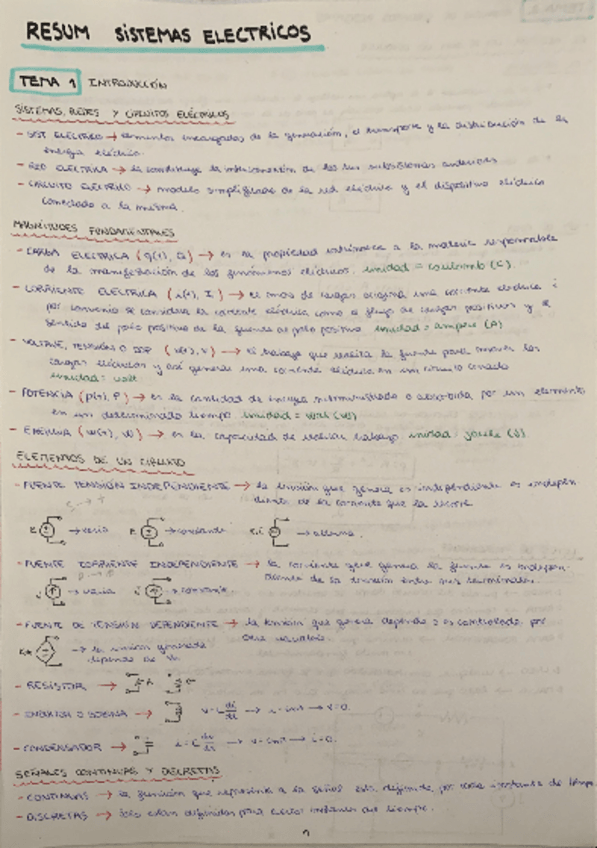 RESUM SISTEMAS ELECTRICOS
TEMA 1 INTRODUCCIÓN
SISTEMAS, REDES Y CIRCUITOS ELÉCTRICOS
- SIST ELÉCTRICO → elementos encargados de la generación, el transporte y la distribución de la
energía eléctrica.
- RED ELÉCTRICA → la constituye la interconexión de los subsistemas anteriores
- CIRCUITO ELÉCTRICO → modelo simplificado de la red eléctrica y el dispositivo eléctrico
conectado a la misma.
MAGNITUDES FUNDAMENTALES
- CARGA ELECTRICA (q(t), Q) → es la propiedad intrínseca a la materia responsable
de la manifestación de los fenómenos eléctricos. unidad = coulomb (C).
- CORRIENTE ELECTRICA (i(t), I) → el de cargas origina una corriente eléctrica i
por convenio se considera la corriente eléctrica como el flujo de cargas positivas y el
sentido del polo positivo de la fuente al polo positivo. unidad = ampere (A)
- VOLTAJE, TENSIÓN O DDP (v(t), V) → El trabajo que realiza la fuente para mover las
cargas eléctricas y así generar una corriente eléctrica en un circuito cerrado
unidad: volt
- POTENCIA (p(t), P) → es la cantidad de energía suministrada o absorbida por un elemento
en un determinado tiempo. unidad = watt (W)
- ENERGIA (w(t), W) → es la capacidad de realizar trabajo. unidad: joule (J)
ELEMENTOS DE UN CIRCUITO
- FUENTE TENSIÓN INDEPENDIENTE → la tensión que genera es independiente es indepen-
diente de la corriente que la recorre
→ varia → constante → alterna.
- FUENTE CORRIENTE INDEPENDIENTE → la corriente que genera la fuente es indepen-
diente de la tensión entre sus terminales.
→ varia → constante.
- FUENTE DE TENSIÓN DEPENDIENTE → la tensión que genera depende o es controlada por
otra variable
→ la tensión generada
depende de
- RESISTOR →
- INDUCTOR O BOBINA → v = L di/dt → i = cnt → v = 0.
- CONDENSADOR → i = C dv/dt → v = cnt → i = 0.
SEÑALES CONTINUAS Y DISCRETAS
- CONTINUAS → la función que representa a la señal está definida por cada instante de tiempo
- DISCRETAS → solo están definidas para ciertos instantes de tiempo.
1